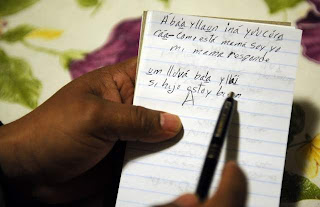 Abáq yllaun iná yvuicéra
cáq-Como está mama soy yo
mi mama Responde
um lluvá bela yllü
si hijo estoy bien
A